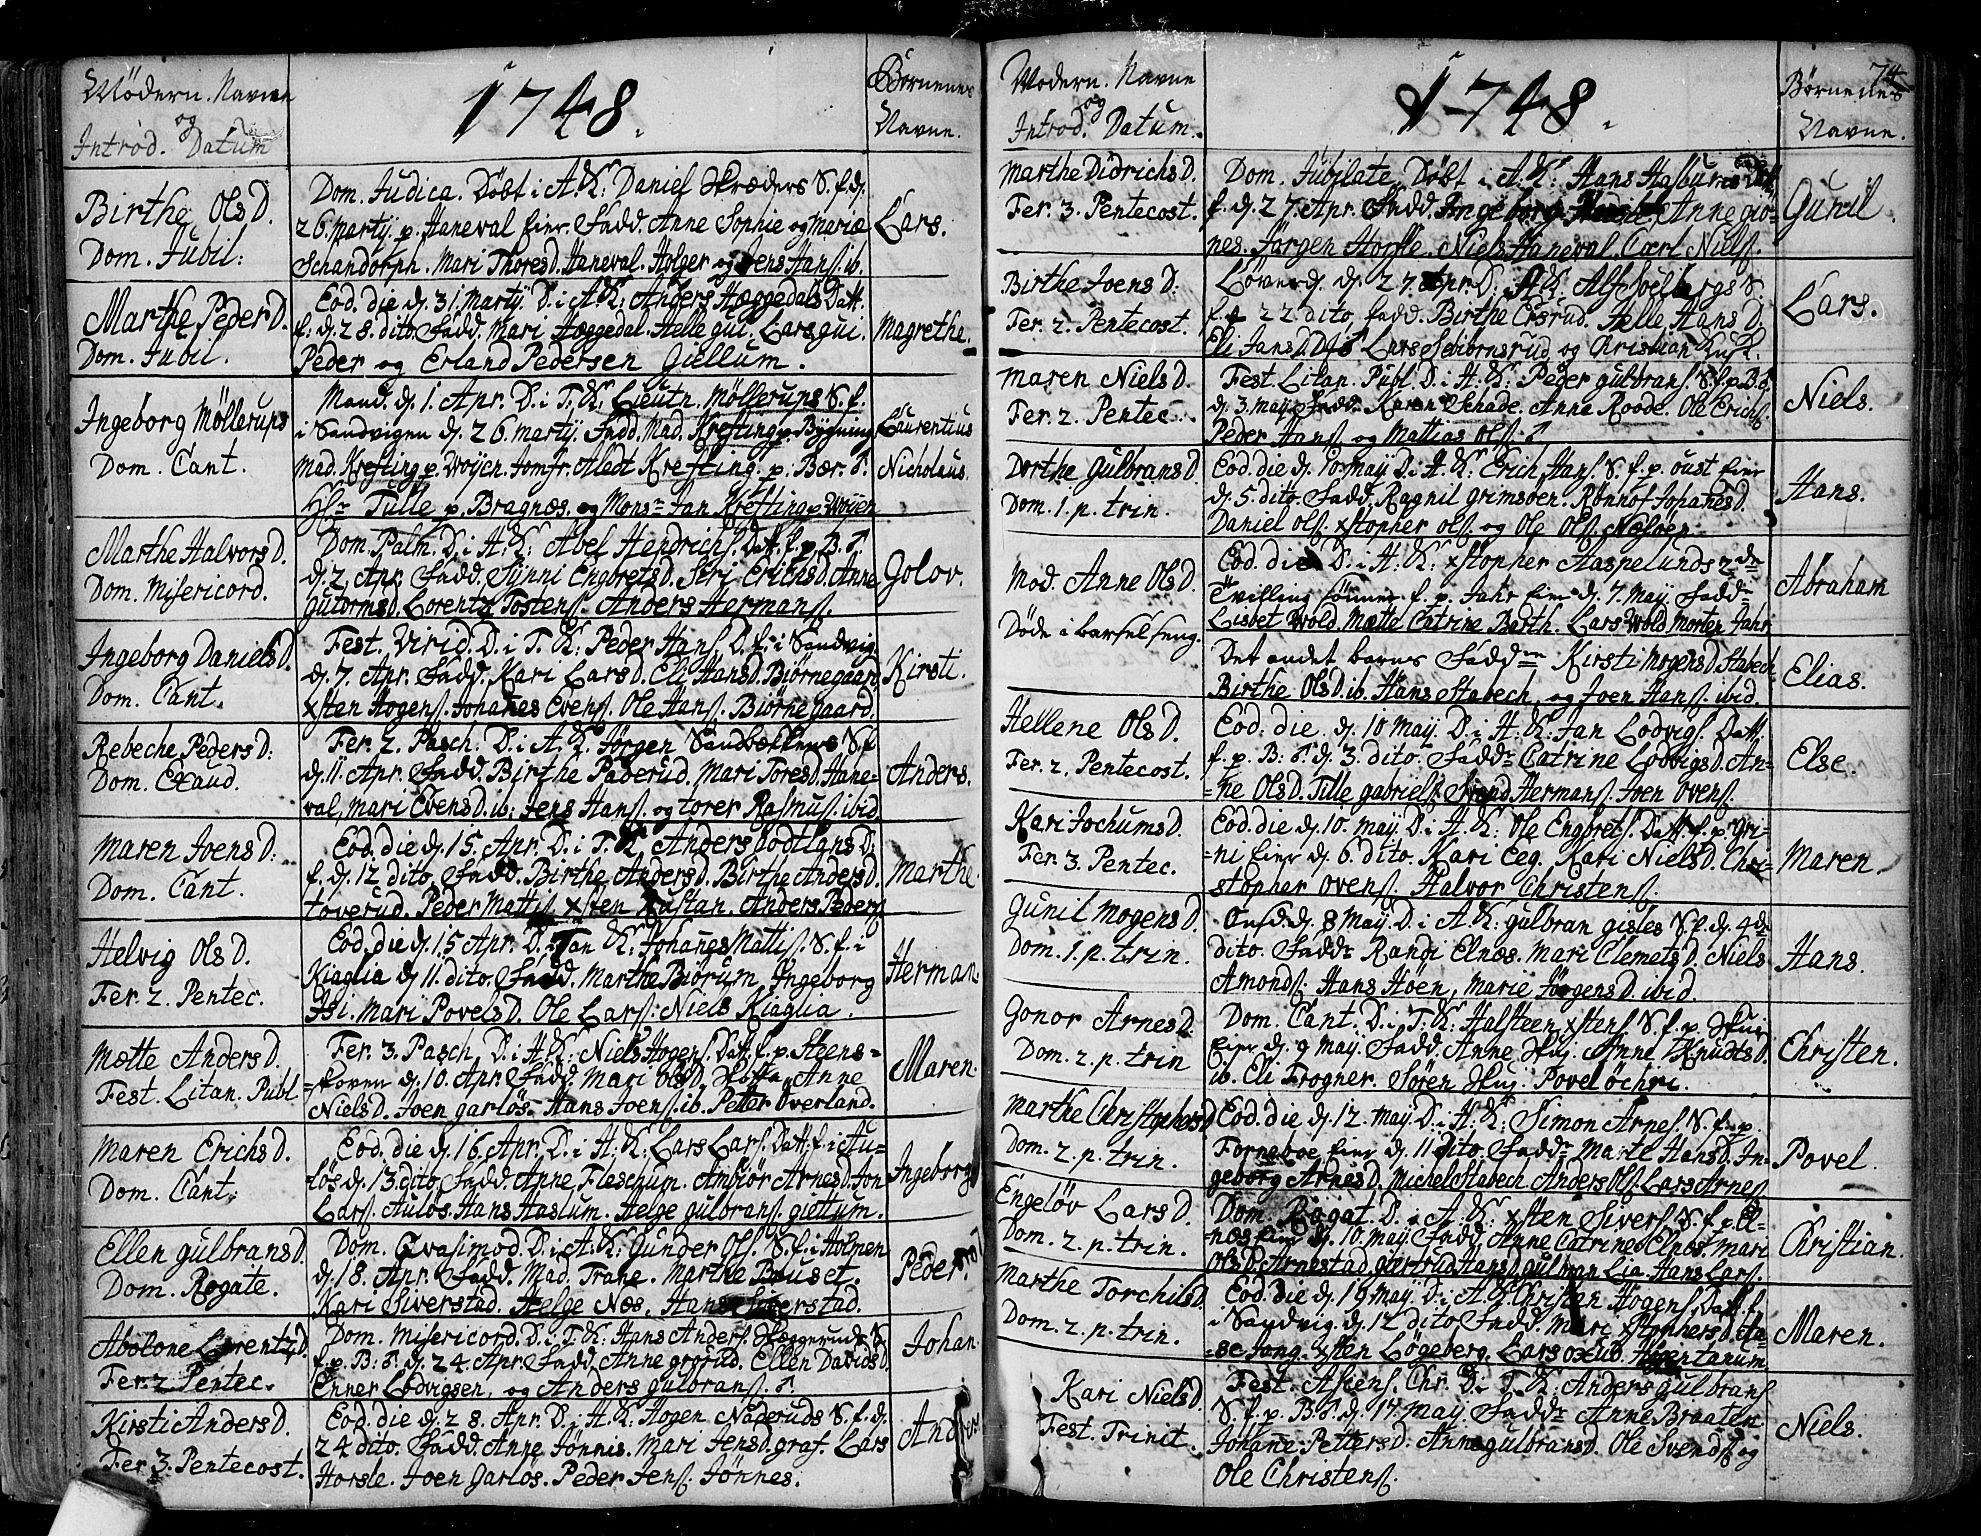 Mödern. Navne
og
Introd. Datum
1748.
Börnenes
Navne.
Birthe Ols D.
Dom. Jubil:
Dom. Judica. Döbt i A. K: Daniel Skræders S. f. dj.
26 martij p. Haneval Eier. Fadd. Anne Sophie og Mariæ
Schandorph. Mari Thores D. Haneval. Holger og Jens Hans. ib.
Lars.
Marthe Peder D.
Dom. Jubil.
Eod. die dj. 31 martij D. i A. K: Anders Hæggedals Datt.
f. dj. 28. dito. Fadd. Mari Hæggedal. Helle gui. Lars gui.
Peder og Erland Pedersen Giellum.
Magrethe.
Ingeborg Möllerups
Dom. Cant.
Mand. dj. 1. Apr. D. i T. K: Lieutn. Möllerups S. f.
i Sandvigen dj. 26 martij. Fadd. Mad. Krefting p. Bygning
Mad. Krefting p. Woijen. Jomfr. Aledt Krefting p. Bær.
Hr Tulle p. Bragnæs. og Monsr Jan Krefting p. Woijen
Laurentius
Nicholaus.
Marthe Halvors D.
Dom. Misericord.
Dom. Palm. D. i A. K: Abel Hendrichs. Datt. f. p. B.
dj. 2 Apr. Fadd. Synni Engbrets D. Siri Erichs D. Anne
gutorms D. Lorentz Tostens. Anders Hermans.
Golov.
Ingeborg Daniels D.
Dom. Cant.
Fest. Virid. D. i T. K: Peder Hans. D. f. i Sandvig.
dj. 7. Apr. Fadd. Kari Lars D. Eli Hans D. Biörnegaard
xsten Hogens. Johannes Evens. Ole Hans. Biörnegaard.
Kirsti.
Rebeche Peders D:
Dom. Exaud.
Fer. 2. Pasch. D. i A. K: Jörgen Sandbækkens S. f.
dj. 11. Apr. Fadd. Birthe Paderud. Mari Tores D. Hane-
val, Mari Evens D. ib. Jens Hans. og torer Rasmus. ibid
Anders.
Maren Joens D:
Dom. Cant.
Eod. die dj. 15. Apr. D. i T. K Anders godtlgns D:
f. dj. 12 dito. Fadd. Birthe Anders D. Birthe Anders D.
toverud. Peder Mattis. xsten Austan. Anders Peders.
Marthe.
Helvig Ols D.
Fer. 2. Pentec.
Eod. die dj. 15 Apr. D. i Tan K: Johannes Mattis. S. f. i
Kiaglia dj. 11. dito. Fadd. Marthe Biörum. Ingeborg
Isi. Mari Povels D. Ole Lars. Niels Kiaglia.
Herman.
Mætte Anders D.
Fest. Litan. Publ
Fer. 3. Pasch. D. i A. K: Niels Hogens. Datt. f. p. Steens-
=koven dj. 10. Apr. Fadd. Mari Ols D. Anne
Niels D. Joen garlös. Hans Joens. ib. Petter Overland.
Maren.
Maren Erichs D.
Dom. Cant.
Eod. die dj. 16 Apr. D. i A. K: Lars Lars. Datt. f. i Au-
lös dj. 13 dito. Fadd Anne Flaschum. Ambiör Arnes D. Jon
Lars. Aulös. Hans Haslum. Helge gulbrans. giettum.
Ingeborg
Ellen gulbrans D.
Dom. Rogate.
Dom. Qvasimod. D. i A. K: Gunder Ols. S. f. i Holmen
dj. 18. Apr. Fadd. Mad. Trane. Marthe Bauset.
Kari Siverstad. Helge Næs. Hans Siverstad.
Peder.
Abolone Lorentz D.
Fer. 2 Pentec.
Dom. Misericord. D. i T. K: Hans Anders. Hæggeruds S.
f. p. B: dj. 24. Apr. Fadd. Anne grorud. Ellen Davids D.
Enner Lodvigsen, og Anders gulbrans.
Johan.
Kirsti Anders D.
Fer. 3. Pentecost.
Eod. die dj. 28. Apr. D. i A. K: Hogen Naderuds S. f. dj.
24 dito. Fadd. Anne Jönnis. Mari Jens D. graf. Lars
Horsle. Joen Garlös. Peder Jens. Jönnes.
Andres.
Modern. Navne
og
Introd. Datum.
1748.
74
Börnenes
Navne.
Marthe Didrichs D.
Fer. 3. Pentecost.
Dom. Jubilate. Döbt i A. K: Hans Hasbunes Datt.
f. dj. 27. Apr. Fadd. Ingeborg Anne giö-
nes. Jörgen Horsle. Niels Haneval. Carl Niels.
Gunil.
Birthe Joens D:
Fer. 2. Pentecost.
Löverd. dj. 27 Apr. D. A. K. Alf Solbergs S.
f. p 22 dito. Fadd. Birthe Ersrud. Helle Hans D.
Eli Jans D. Lars Sbiörnsrud og Christian Kusk.
Lars.
Maren Niels D.
Fer. 2. Pentec.
Fest. Litan. Publ. D. i A. K: Peder gulbrans. S. f. p. B.
dj. 3. maij. Fadd. Karen Schade. Anne Roode. Ole Erichs.
Peder Hans. og Mattias Ols.
Niels.
Dorthe Gulbrans D.
Dom. 1. p. trin.
Eod. die dj. 10 maij. D. i A. K: Erich Hans. S. f. p. oust Eier
dj. 5. dito. Fadd. Ragnil grimsöen. Rönnof Johanes D.
Daniel ols. xstopher ols. og Ole Ols. Næsöen.
Hans.
Mod. Anne Ols D.
Döde i barselseng.
Eod. die D. i A. K: xstopher Haspelunds 2de
Tvilling sönner f. p. Jahr Eier dj. 7. maij. Faddr
Lisbet Wold. Mætte Catrine Barth. Lars Wold. Morten Jahr.
Abraham
Det andet barns Faddre Kirsti Mogens D. Stabech
Birthe Ols D. ib. Hans Stabech, og Joen Hans. ibid.
Elias.
Hellene Ols D.
Fer. 2. Pentecost.
Eod. die dj. 10 maij. D. i A. K: Jan Lodvigs. Datt.
f. p. B: dj. 3. dito. Faddr Catrine Lodvigs D. An-
=ne Ols D. Tille gabriels. Svend Hermans. Joen Ovens.
Else.
Kari Jochums D.
Fer. 3. Pentec.
Eod. die dj. 10. maij. D. i A. K: Ole Engbrets. Datt. f. p. gri-
=ni Eier dj. 6. dito. Kari Eeg. Kari Niels D. Chri-
stopher Ovens. Halvor Christens.
Maren.
Gunil Mogens D.
Dom. 1. p. trin.
Onsd. dj. 8 maij. D. i A. K: gulbran gisles S. f. dj. 4de
dito. Faddr Randi Elnæs. Mari Clemets D. Niels
Amonds. Hans Höen, Marie Jörgens D. ibid.
Hans.
Gonor Arnes D.
Dom. 2. p. trin
Dom. Cant. D. i T. K: Halsteen xstens S. f. p. Huu
Eier dj. 9 maij. Fadd. Anne Hui. Anne Knudts D.
ib. Eli Frogner. Sören Hui. Povel öchri.
Christen.
Marthe Christophers D
Dom. 2. p. trin.
Eod. die dj. 12. maij. D. i A. K: Simon Arnes. S. f. p.
Forneboe Eier dj. 11 dito. Faddr Marte Hans D. In-
geborg Arnes D. Michel Stabech. Anders Ols. Lars Arnes.
Povel.
Engelöv Lars D.
Dom. 2. p. trin.
Dom. Rogat. D. i A. K: xsten Sivers. S. f. p. El-
nes Eier dj. 10. maij. Fadd. Anne Catrines Elnæs. Mari
Ols D. Arnestad. giertrud Hans D. gulman Lia. Hans Lars.
Christian.
Marthe Torchils D.
Dom. 2. p. trin.
Eod. die dj. 19 maij. D. i A. K. Christen Hogens. Datt. f.
i Sandvig. dj. 12 dito Fadd. Mari xstophers D. Aa-
se Jong. xsten Lögeberg. Lars Horntanum
Maren.
Kari Niels D.
Fest. Trinit.
Fest. Ascens. Chr. D. i T. K: Anders gulbrans
S. f. p. B. dj. 14. maij. Faddr Anne Braaten.
Johanne Petters D. Anne gulbrans D. Ole Svends. og
Ole Christens.
Niels.